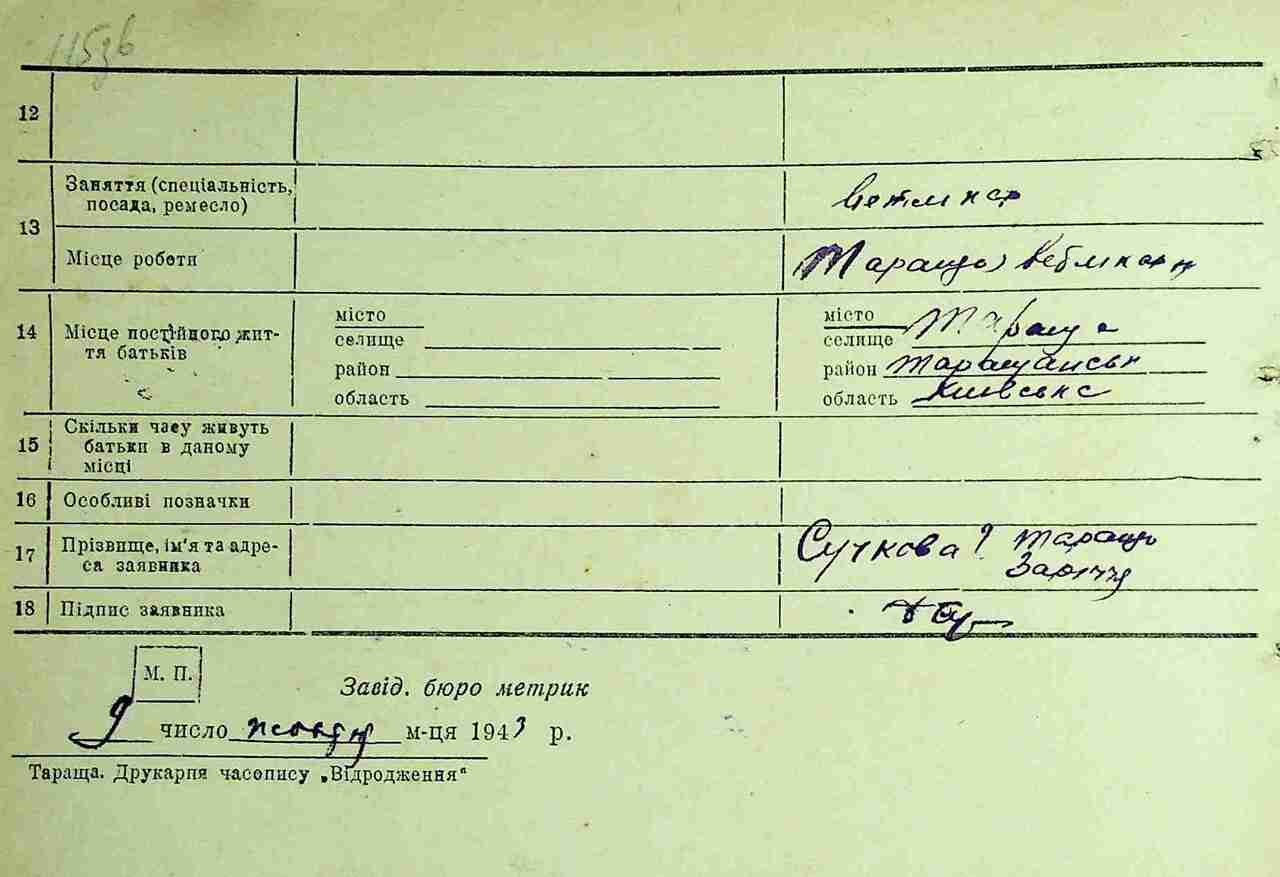 115зв
12
Заняття (спеціальність,
посада, ремесло)
13
Місце роботи
Тараща
14
Місце постійного жит-
тя батьків
місто
селище
район
область
місто Тараща
селище
район Таращанськ
область Київська
15
Скільки часу живуть
батьки в даному
місці
16 Особливі позначки
17
Прізвище, ім'я та адре-
са заявника
Сучкова Тараща
Заріччя
18 Підпис заявника
М. П.
Завід. бюро метрик
9 число жовтня м-ця 1943 р.
Тараща. Друкарня часопису „Відродження“